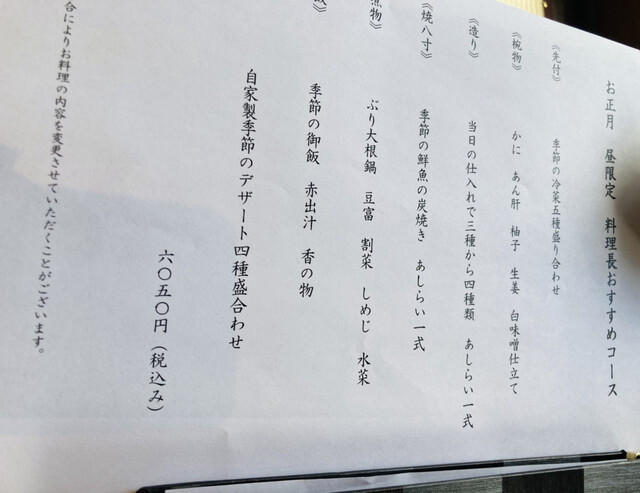 お正月　昼限定　料理長おすすめコース
《先付》　季節の冷菜五種盛り合わせ
《椀物》　かに　あん肝　柚子　生姜　白味噌仕立て
《造り》　当日の仕入れで三種から四種類　あしらい一式
《焼八寸》　季節の鮮魚の炭焼き　あしらい一式
物》　ぶり大根鍋　豆富　割菜　しめじ　水菜
》　季節の御飯　赤出汁　香の物
自家製季節のデザート四種盛合わせ
六〇五〇円（税込み）
合によりお料理の内容を変更させていただくことがございます。